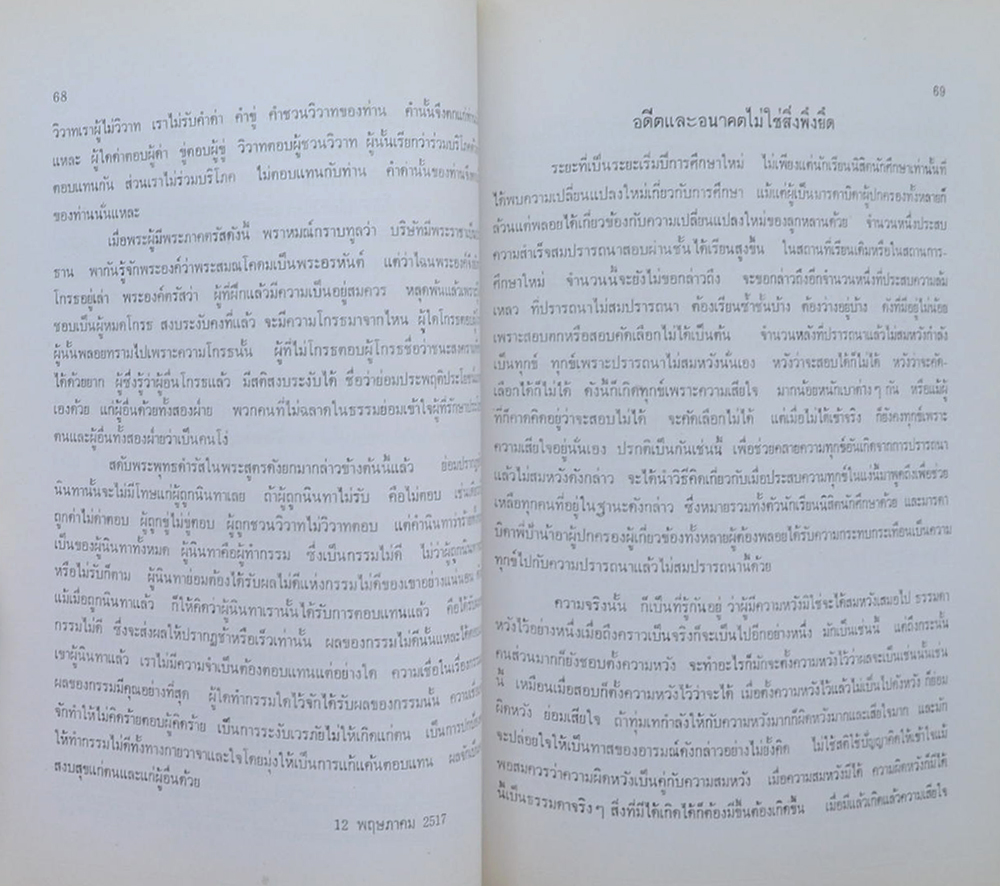 68
วิวาทเราผู้ไม่วิวาท เราไม่รับคำด่า คำขู่ คำชวนวิวาทของท่าน คำนั้นจึงตกแก่
แหละ ผู้ใดด่าตอบผู้ด่า ขู่ตอบผู้ขู่ วิวาทตอบผู้ชวนวิวาท ผู้นั้นเรียกว่าร่วมบริโภค
ตอบแทนกัน ส่วนเราไม่ร่วมบริโภค ไม่ตอบแทนกับท่าน คำด่านั้นของท่านจึง
ของท่านนั่นแหละ
เมื่อพระผู้มีพระภาคตรัสดังนี้ พราหมณ์กราบทูลว่า บริษัทมีพระราชาเป็น
ธาน พากันรู้จักพระองค์ว่าพระสมณโคดมเป็นพระอรหันต์ แต่ว่าไฉนพระองค์จึง
โกรธอยู่เล่า พระองค์ตรัสว่า ผู้ที่ฝึกแล้วมีความเป็นอยู่สมควร หลุดพ้นแล้วเพราะ
ชอบเป็นผู้หมดโกรธ สงบระงับคงที่แล้ว จะมีความโกรธมาจากไหน ผู้ใดโกรธตอบ
ผู้นั้นพลอยทรามไปเพราะความโกรธนั้น ผู้ที่ไม่โกรธตอบผู้โกรธชื่อว่าชนะสงคราม
ได้ด้วยยาก ผู้ซึ่งรู้ว่าผู้อื่นโกรธแล้ว มีสติสงบระงับได้ ชื่อว่าย่อมประพฤติประโยชน์
เองด้วย แก่ผู้อื่นด้วยทั้งสองฝ่าย พวกคนที่ไม่ฉลาดในธรรมย่อมเข้าใจผู้ที่รักษา
ตนและผู้อื่นทั้งสองฝ่ายว่าเป็นคนโง่
สดับพระพุทธดำรัสในพระสูตรดังยกมากล่าวข้างต้นนี้แล้ว ย่อมปรากฏ
นินทานั้นจะไม่มีโทษแก่ผู้ถูกนินทาเลย ถ้าผู้ถูกนินทาไม่รับ คือไม่ตอบ
ถูกด่าไม่ด่าตอบ ผู้ถูกขู่ไม่ขู่ตอบ ผู้ถูกชวนวิวาทไม่วิวาทตอบ แต่คำนินทาว่าร้าย
เป็นของผู้นินทาทั้งหมด ผู้นินทาคือผู้ทำกรรม ซึ่งเป็นกรรมไม่ดี ไม่ว่าผู้ถูกนินทา
หรือไม่รับก็ตาม ผู้นินทาย่อมต้องได้รับผลไม่ดีแห่งกรรมไม่ดีของเขาอย่างแน่นอน
แม้เมื่อถูกนินทาแล้ว ก็ให้คิดว่าผู้นินทาเรานั้นได้รับการตอบแทนแล้ว คือได้รับ
กรรมไม่ดี ซึ่งจะส่งผลให้ปรากฏช้าหรือเร็วเท่านั้น ผลของกรรมไม่ดีนั้นแหละได้
เขาผู้นินทาแล้ว เราไม่มีความจำเป็นต้องตอบแทนแต่อย่างใด ความเชื่อในเรื่อง
ผลของกรรมมีคุณอย่างที่สุด ผู้ใดทำกรรมใดไว้จักได้รับผลของกรรมนั้น
จักทำให้ไม่คิดร้ายตอบผู้คิดร้าย เป็นการระงับเวรภัยไม่ให้เกิดแก่ตน เป็นการ
ให้ทำกรรมไม่ดีทั้งทางกายวาจาและใจโดยมุ่งให้เป็นการแก้แค้นตอบแทน
สงบสุขแก่ตนและแก่ผู้อื่นด้วย
12 พฤษภาคม 2517
69
อดีตและอนาคตไม่ใช่สิ่งพึงยึด
ระยะที่เป็นระยะเริ่มปีการศึกษาใหม่ ไม่เพียงแต่นักเรียนนิสิตนักศึกษาเท่านั้นที่
ได้พบความเปลี่ยนแปลงใหม่เกี่ยวกับการศึกษา แม้แต่ผู้เป็นมารดาบิดาผู้ปกครองทั้งหลายก็
ล้วนแต่พลอยได้เกี่ยวข้องกับความเปลี่ยนแปลงใหม่ของลูกหลานด้วย จำนวนหนึ่งประสบ
ความสำเร็จสมปรารถนาสอบผ่านชั้นได้เรียนสูงขึ้น ในสถานที่เรียนเดิมหรือในสถานการ-
ศึกษาใหม่ จำนวนนี้จะยังไม่ขอกล่าวถึง จะขอกล่าวถึงอีกจำนวนหนึ่งที่ประสบความล้ม
เหลว ที่ปรารถนาไม่สมปรารถนา ต้องเรียนซ้ำชั้นบ้าง ต้องว่างอยู่บ้าง ดังที่มีอยู่ไม่น้อย
เพราะสอบตกหรือสอบคัดเลือกไม่ได้เป็นต้น จำนวนหลังที่ปรารถนาแล้วไม่สมหวังกำลัง
เป็นทุกข์ ทุกข์เพราะปรารถนาไม่สมหวังนั่นเอง หวังว่าจะสอบได้ก็ไม่ได้ หวังว่าจะคัด-
เลือกได้ก็ไม่ได้ ดังนี้ก็เกิดทุกข์เพราะความเสียใจ มากน้อยหนักเบาต่างๆ กัน หรือแม้ผู้
ที่คาดคิดอยู่ว่าจะสอบไม่ได้ จะคัดเลือกไม่ได้ แต่เมื่อไม่ได้เข้าจริง ก็ยังคงทุกข์เพราะ
ความเสียใจอยู่นั่นเอง ปรกติเป็นกันเช่นนี้ เพื่อช่วยคลายความทุกข์อันเกิดจากการปรารถนา
แล้วไม่สมหวังดังกล่าว จะได้นำวิธีคิดเกี่ยวกับเมื่อประสบความทุกข์ในแง่นี้มาพูดถึงเพื่อช่วย
เหลือทุกคนที่อยู่ในฐานะดังกล่าว ซึ่งหมายรวมทั้งตัวนักเรียนนิสิตนักศึกษาด้วย และมารดา
บิดาพี่ป้าน้าอาผู้ปกครองผู้เกี่ยวข้องทั้งหลายผู้ต้องพลอยได้รับความกระทบกระเทือนเป็นความ
ทุกข์ไปกับความปรารถนาแล้วไม่สมปรารถนานี้ด้วย
ความจริงนั้น ก็เป็นที่รู้กันอยู่ ว่าผู้มีความหวังมิใช่จะได้สมหวังเสมอไป ธรรมดา
หวังไว้อย่างหนึ่งเมื่อถึงคราวเป็นจริงก็จะเป็นไปอีกอย่างหนึ่ง มักเป็นเช่นนี้ แต่ถึงกระนั้น
คนส่วนมากก็ยังชอบตั้งความหวัง จะทำอะไรก็มักจะตั้งความหวังไว้ว่าผลจะเป็นเช่นนั้นเช่น
นี้ เหมือนเมื่อสอบก็ตั้งความหวังไว้ว่าจะได้ เมื่อตั้งความหวังไว้แล้วไม่เป็นไปดังหวัง ก็ย่อม
ผิดหวัง ย่อมเสียใจ ถ้าทุ่มเทกำลังให้กับความหวังมากก็ผิดหวังมากและเสียใจมาก และมัก
จะปล่อยใจให้เป็นทาสของอารมณ์ดังกล่าวอย่างไม่ยั้งคิด ไม่ใช้สติใช้ปัญญาคิดให้เข้าใจแม้
พอสมควรว่าความผิดหวังเป็นคู่กับความสมหวัง เมื่อความสมหวังมีได้ ความผิดหวังก็มีได้
นี้เป็นธรรมดาจริงๆ สิ่งที่มีได้เกิดได้ก็ต้องมีขึ้นต้องเกิดขึ้น เมื่อมีแล้วเกิดแล้วความเสียใจ